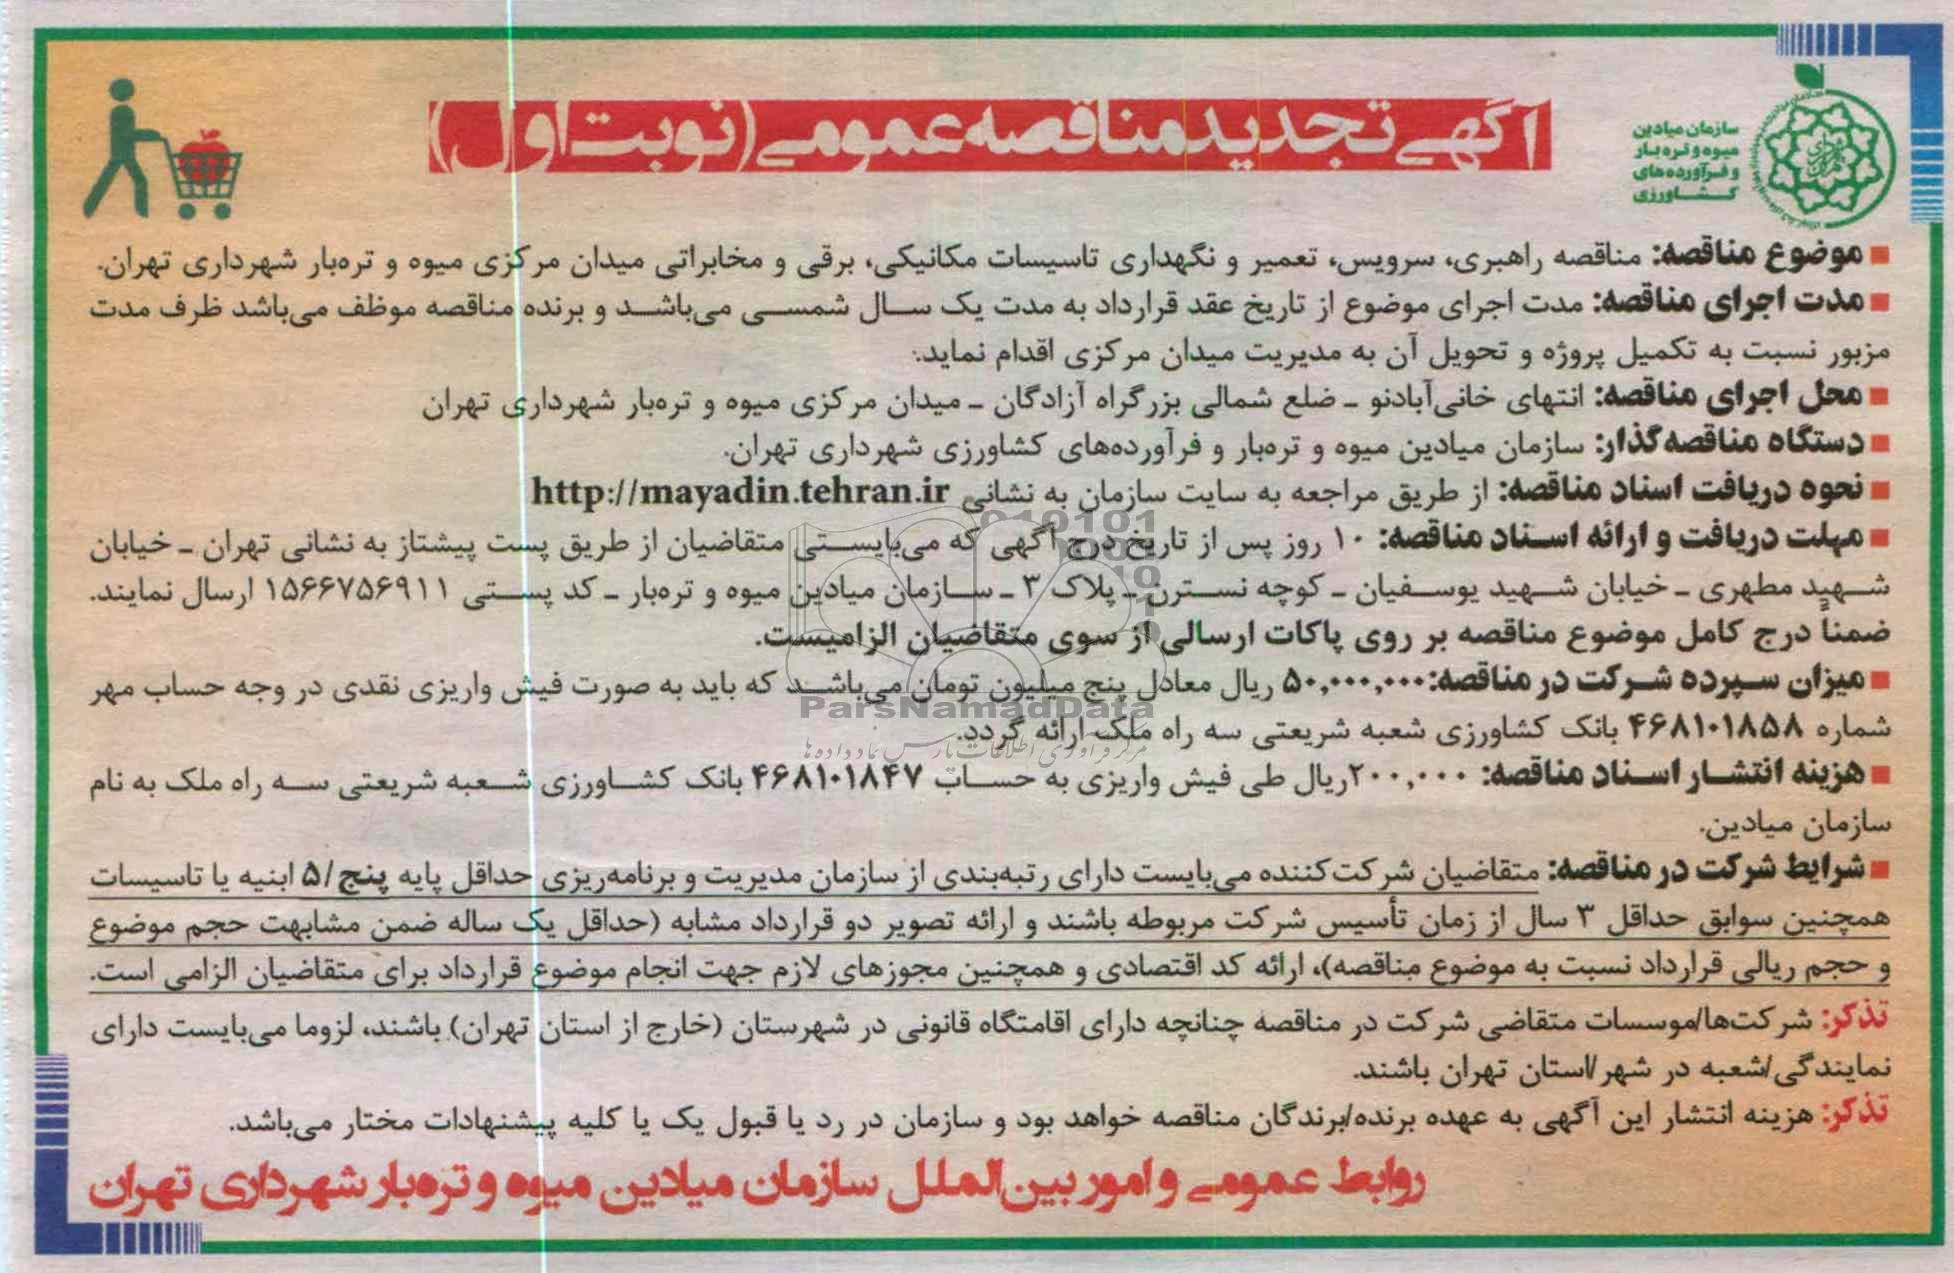 آگهی تجدید مناقصه عمومی (نوبت اول)
سازمان میادین
میوه و تره‌بار
و فرآورده‌های
کشاورزی
■ موضوع مناقصه: مناقصه راهبری، سرویس، تعمیر و نگهداری تاسیسات مکانیکی، برقی و مخابراتی میدان مرکزی میوه و تره‌بار شهرداری تهران.
■ مدت اجرای مناقصه: مدت اجرای موضوع از تاریخ عقد قرارداد به مدت یک سال شمسی می‌باشد و برنده مناقصه موظف می‌باشد ظرف مدت
مزبور نسبت به تکمیل پروژه و تحویل آن به مدیریت میدان مرکزی اقدام نماید.
■ محل اجرای مناقصه: انتهای خانی‌آبادنو ـ ضلع شمالی بزرگراه آزادگان ـ میدان مرکزی میوه و تره‌بار شهرداری تهران
■ دستگاه مناقصه‌گذار: سازمان میادین میوه و تره‌بار و فرآورده‌های کشاورزی شهرداری تهران.
■ نحوه دریافت اسناد مناقصه: از طریق مراجعه به سایت سازمان به نشانی http://mayadin.tehran.ir
■ مهلت دریافت و ارائه اسناد مناقصه: ۱۰ روز پس از تاریخ درج آگهی که می‌بایستی متقاضیان از طریق پست پیشتاز به نشانی تهران ـ خیابان
شهید مطهری ـ خیابان شهید یوسفیان ـ کوچه نسترن ـ پلاک ۳ ـ سازمان میادین میوه و تره‌بار ـ کد پستی ۱۵۶۶۷۵۶۹۱۱ ارسال نمایند.
ضمناً درج کامل موضوع مناقصه بر روی پاکات ارسالی از سوی متقاضیان الزامیست.
■ میزان سپرده شرکت در مناقصه: ۵۰,۰۰۰,۰۰۰ ریال معادل پنج میلیون تومان می‌باشد که باید به صورت فیش واریزی نقدی در وجه حساب مهر
شماره ۴۶۸۱۰۱۸۵۸ بانک کشاورزی شعبه شریعتی سه راه ملک ارائه گردد.
■ هزینه انتشار اسناد مناقصه: ۲۰۰,۰۰۰ریال طی فیش واریزی به حساب ۴۶۸۱۰۱۸۴۷ بانک کشاورزی شعبه شریعتی سه راه ملک به نام
سازمان میادین.
■ شرایط شرکت در مناقصه: متقاضیان شرکت‌کننده می‌بایست دارای رتبه‌بندی از سازمان مدیریت و برنامه‌ریزی حداقل پایه پنج/۵ ابنیه یا تاسیسات
همچنین سوابق حداقل ۳ سال از زمان تأسیس شرکت مربوطه باشند و ارائه تصویر دو قرارداد مشابه (حداقل یک ساله ضمن مشابهت حجم موضوع
و حجم ریالی قرارداد نسبت به موضوع مناقصه)، ارائه کد اقتصادی و همچنین مجوزهای لازم جهت انجام موضوع قرارداد برای متقاضیان الزامی است.
تذکر: شرکت‌ها/موسسات متقاضی شرکت در مناقصه چنانچه دارای اقامتگاه قانونی در شهرستان (خارج از استان تهران) باشند، لزوما می‌بایست دارای
نمایندگی/شعبه در شهر/استان تهران باشند.
تذکر: هزینه انتشار این آگهی به عهده برنده/برندگان مناقصه خواهد بود و سازمان در رد یا قبول یک یا کلیه پیشنهادات مختار می‌باشد.
روابط عمومی و امور بین‌الملل سازمان میادین میوه و تره‌بار شهرداری تهران
ParsNamadData
مرکز فرآوری اطلاعات پارس نماد داده‌ها